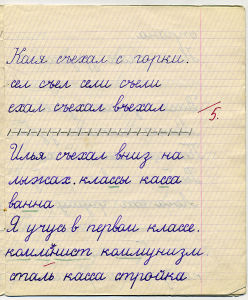 Коля съехал с горки.
сел съел сели съели
ехал съехал въехал
5.
Илья съехал вниз на
лыжах. классы касса
ванна
Я учусь в первом классе.
коммунист коммунизм
сталь касса стройка